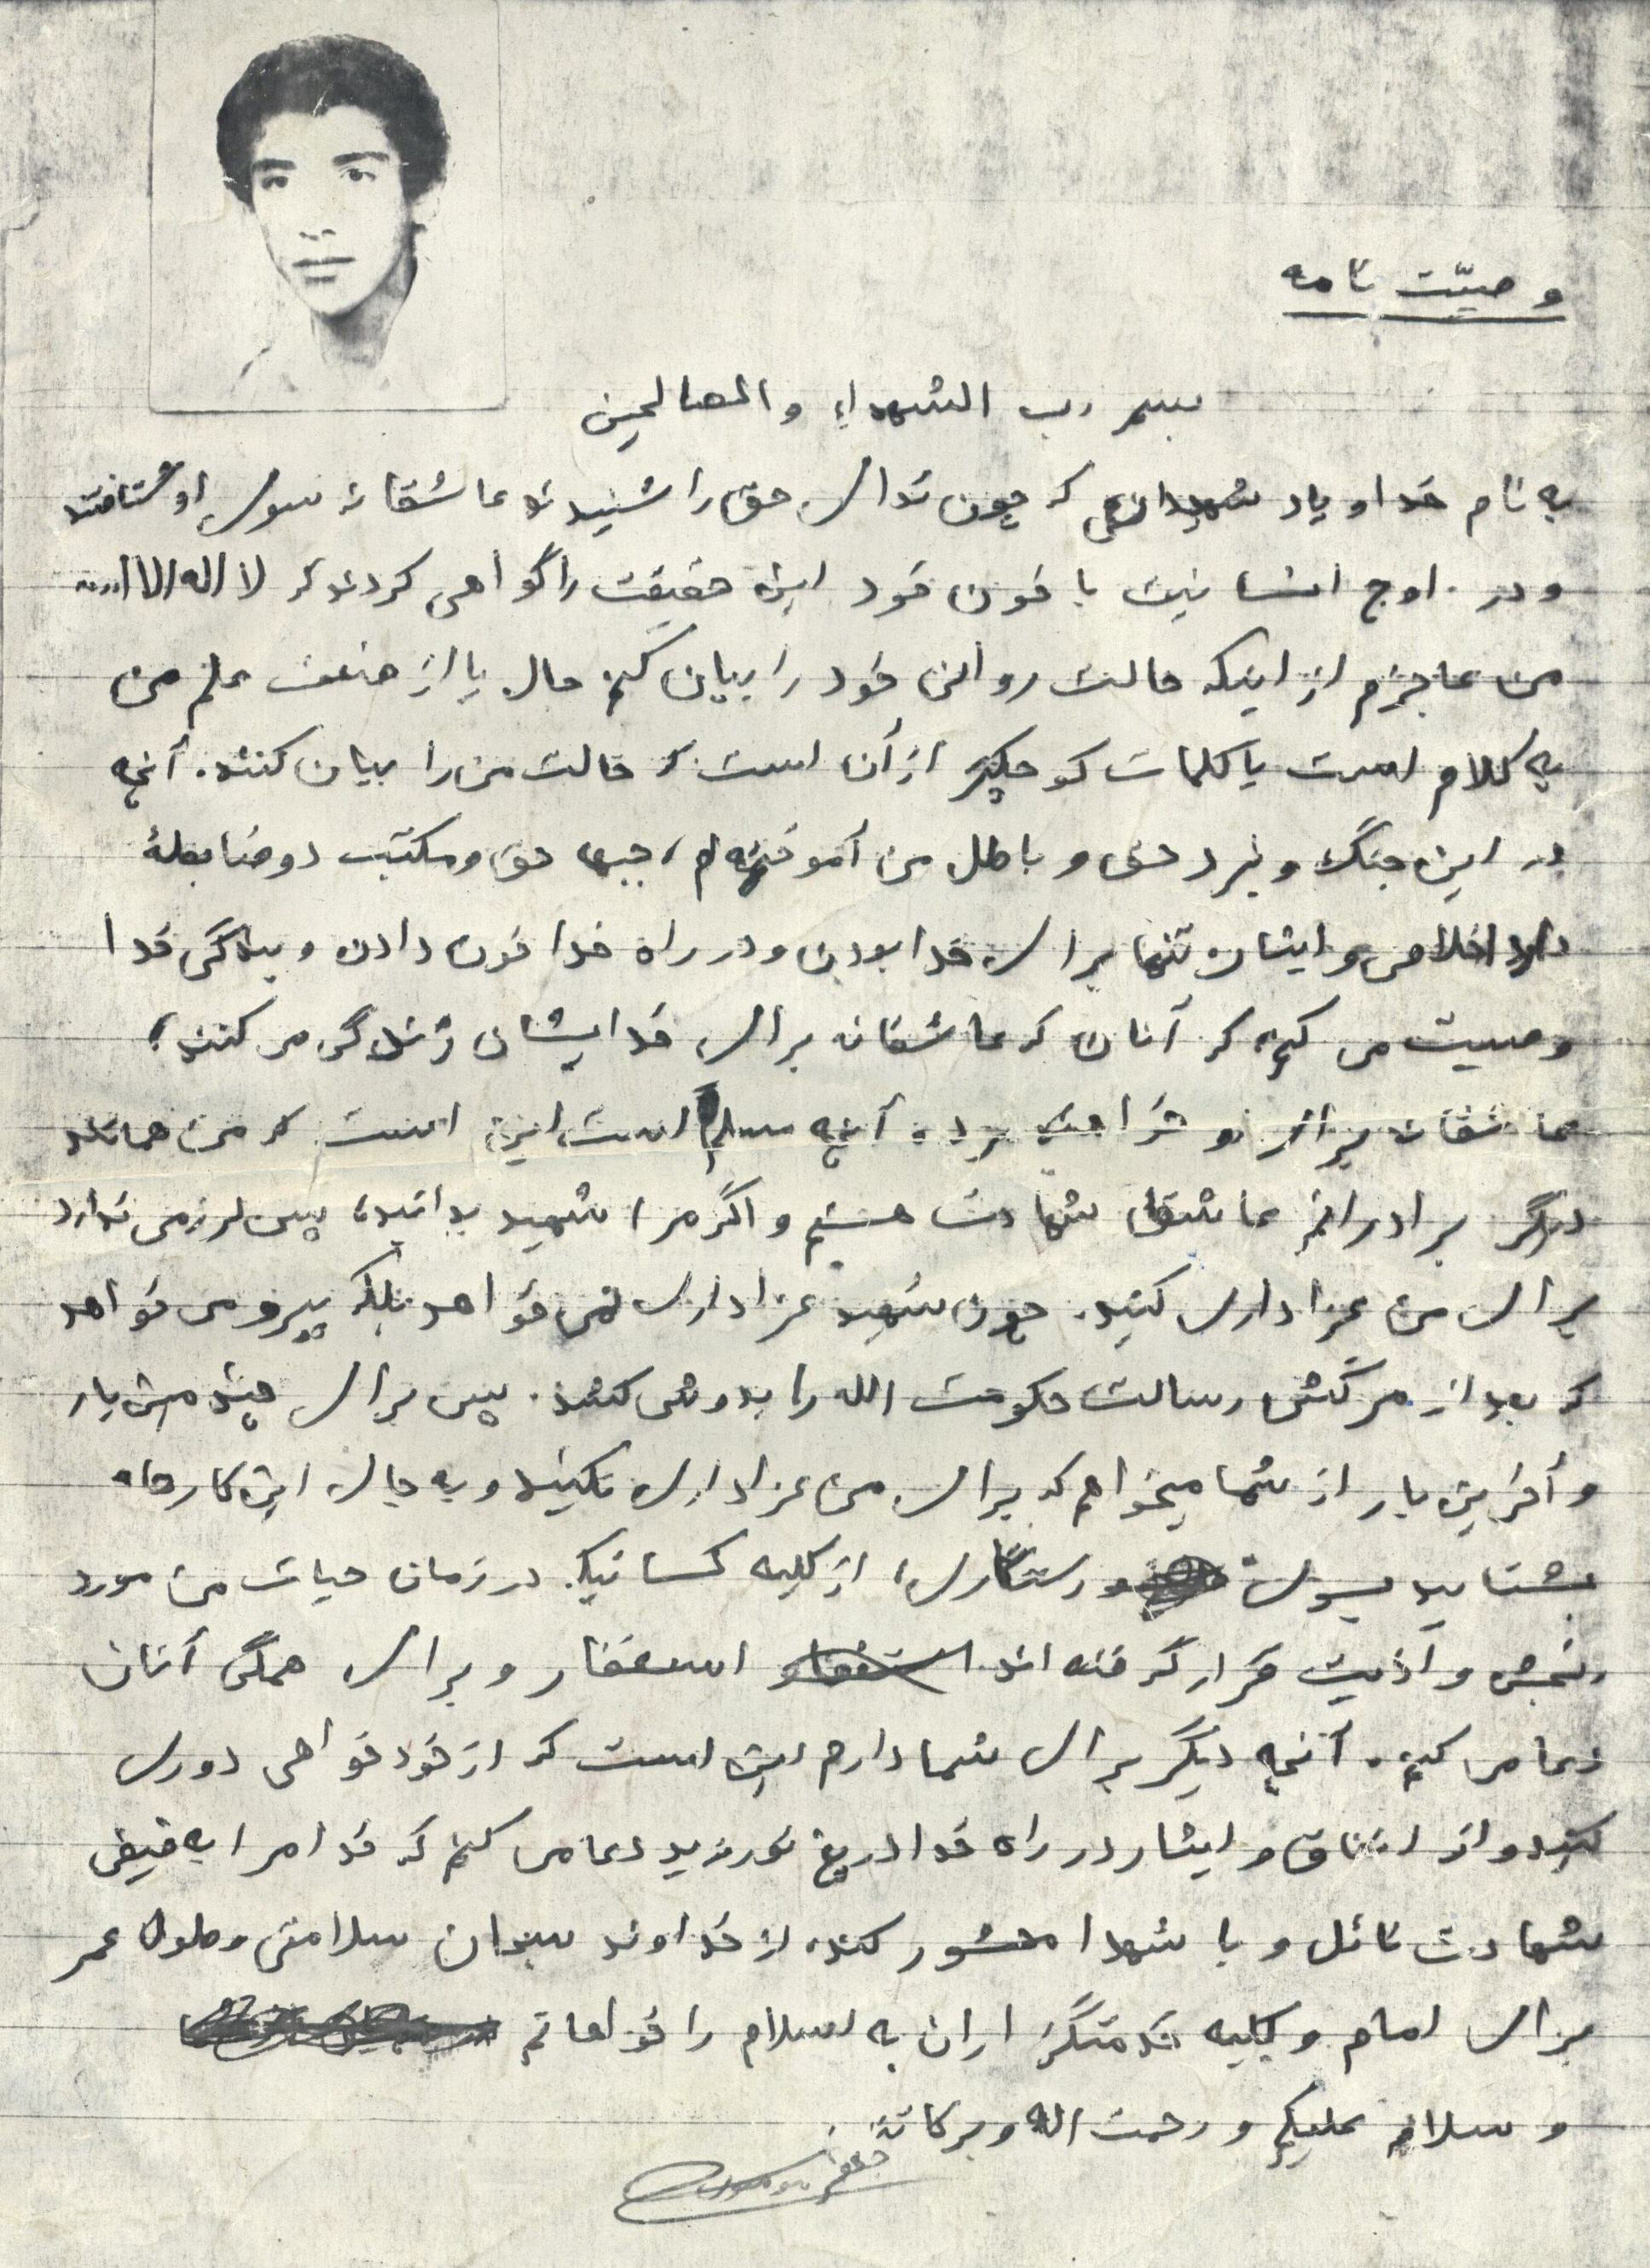 وصیّت نامه
بسم رب الشهداء والصالحین
به نام خدا و یاد شهیدانی که چون ندای حق را شنیدند عاشقانه بسوی او شتافتند
و در اوج انسانیت با خون خود این حقیقت را گواهی کردند که لا اله الا الله
من عاجزم از اینکه حالت روانی خود را بیان کنم حال یا از ضعف علم من
به کلام است یا کلمات کوچکتر از آن است که حالت من را بیان کنند. آنچه
در این جنگ و نبرد حق و باطل من آموخته ام، جبهه حق و مکتب دو ضابطهٔ
دارد اخلاص و ایثار، تنها برای خدا بودن و در راه خدا خون دادن و بندگی خدا
وصیت می کنم که آنان که عاشقانه برای خدایشان زندگی می کنند،
عاشقانه برای او خواهند مرد. آنچه مسلم است این است که من همانند
دیگر برادرانم عاشق شهادت هستم و اگر مرا شهید بدانید، پس لزومی ندارد
برای من عزاداری کنید. چون شهید عزاداری نمی خواهد بلکه پیرو می خواهد
که بعد از مرگش رسالت حکومت الله را بدوش کشند. پس برای چندمین بار
و آخرین بار از شما میخواهم که برای من عزاداری نکنید و به جای این کارها
بشتابید بسوی رستگاری، از کلیه کسانیکه در زمان حیات من مورد
رنجش و اذیت قرار گرفته اند استغفار و برای همگی آنان
دعا می کنم. آنچه دیگر برای شما دارم این است که از خودخواهی دوری
کنید و از انفاق و ایثار در راه خدا دریغ نورزید دعا می کنم که خدا مرا به فیض
شهادت نائل و با شهدا محشور کند، از خداوند سبحان سلامتی و طول عمر
برای امام و کلیه خدمتگزاران به اسلام را خواهانم
و سلام علیکم و رحمت اله و برکاته
جعفر